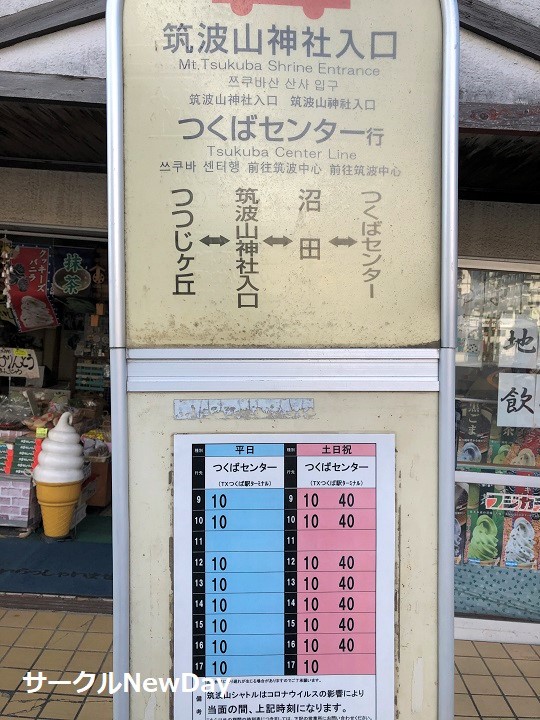 筑波山神社入口
Mt.Tsukuba Shrine Entrance
쓰쿠바산 산사 입구
筑波山神社入口 筑波山神社入口
つくばセンター行
Tsukuba Center Line
쓰쿠바 센터행 前往筑波中心 前往筑波中心
つつじヶ丘
筑波山神社入口
沼田
つくばセンター
クッキーズバニラ
抹茶
かりんとう
地
飲
黒ごま
種別 平日 種別 土日祝
行先 つくばセンター 行先 つくばセンター
(TXつくば駅ターミナル) (TXつくば駅ターミナル)
9 10 9 10 40
10 10 10 10 40
11 11
12 10 12 10 40
13 10 13 10 40
14 10 14 10 40
15 10 15 10 40
16 10 16 10 40
17 10 17 10
備考
筑波山シャトルはコロナウイルスの影響により
当面の間、上記時刻になります。
サークルNewDay